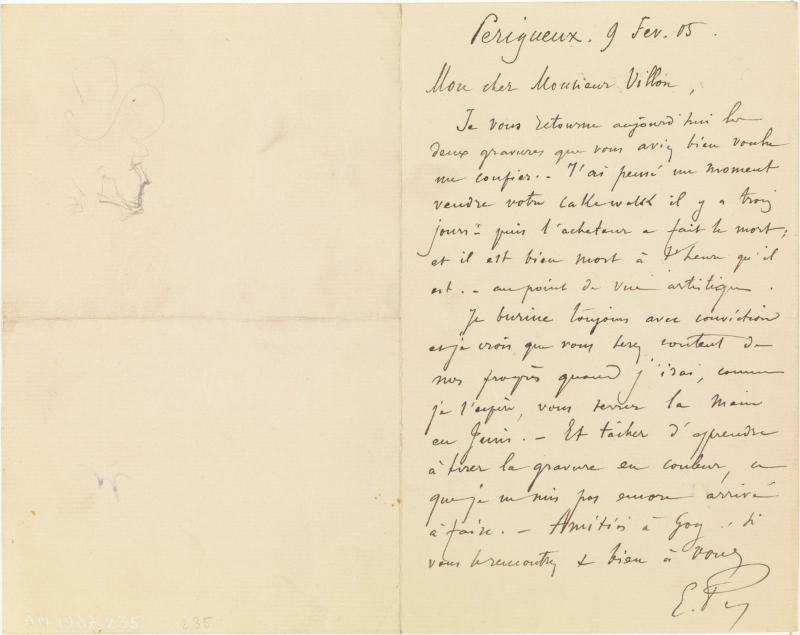 Perigueux. 9 Fev. 05.
Mon cher Monsieur Villon,
Je vous retourne aujourd'hui les
deux gravures que vous aviez bien voulu
me confier. - J'ai pensé un moment
vendre votre Cakewalk il y a trois
jours - puis l'acheteur a fait le mort;
et il est bien mort à l'heure qu'il
est. - au point de vue artistique.
Je burine toujours avec conviction
et je crois que vous serez content de
mes progrès quand j'irai, comme
je l'espère, vous serrer la main
en Juin. - Et tâcher d'apprendre
à tirer la gravure en couleur, ce
que je ne suis pas encore arrivé
à faire. - Amitiés à Goy si
vous le rencontrez & bien à vous
E.
AM 1967 235
235